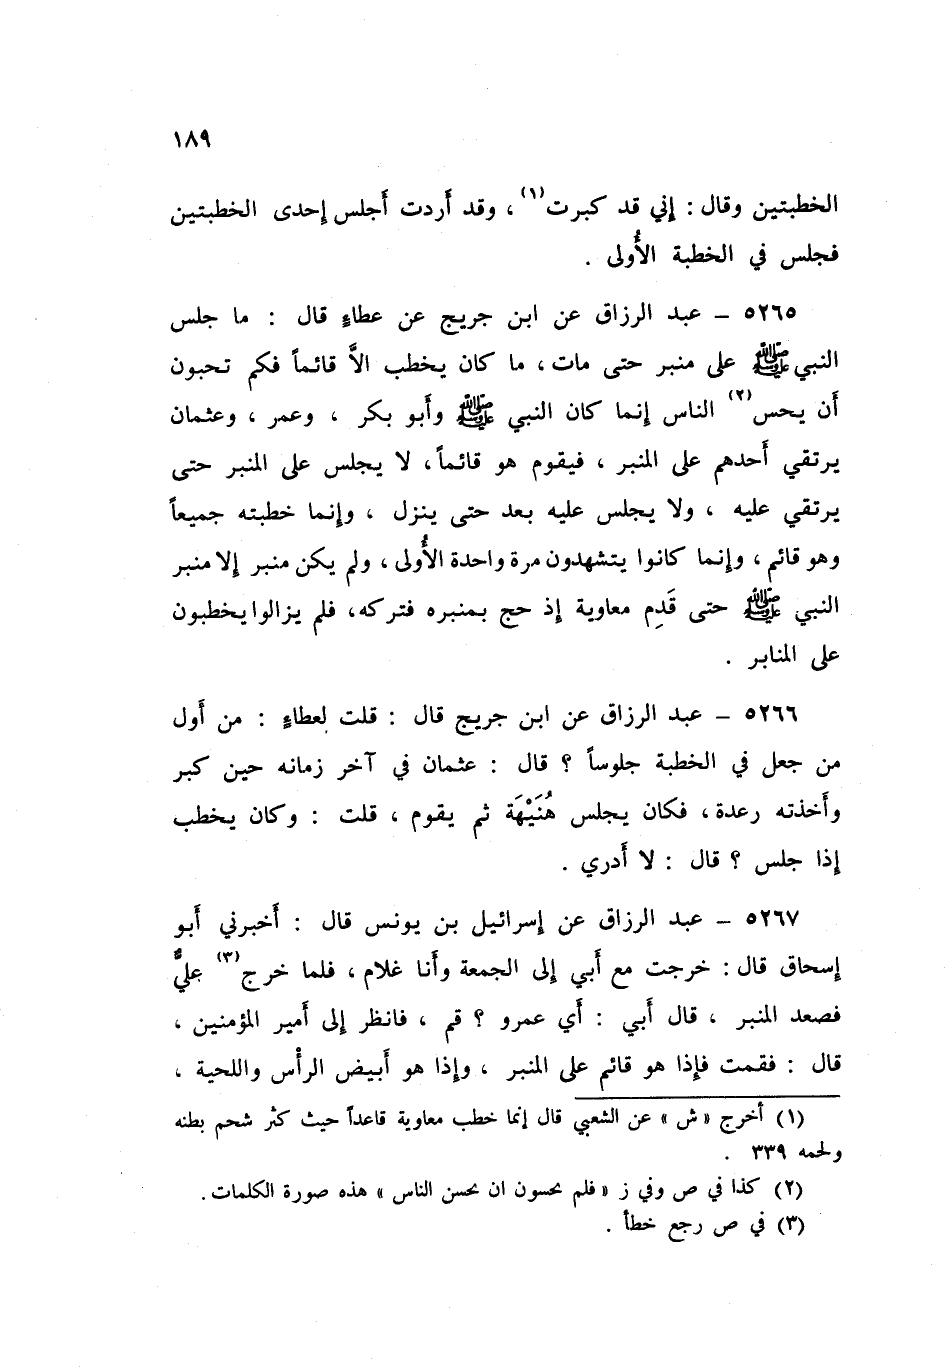 ١٨٩
الخطبتين وقال : إني قد كبرت(١) ، وقد أَردت أَجلس إحدى الخطبتين
فجلس في الخطبة الأُولى .
٥٢٦٥ – عبد الرزاق عن ابن جريج عن عطاءٍ قال : ما جلس
النبي ﷺ على منبر حتى مات ، ما كان يخطب الاَّ قائماً فكم تحبون
أَن يحس(٢) الناس إنما كان النبي ﷺ وأَبو بكر ، وعمر ، وعثمان
يرتقي أَحدهم على المنبر ، فيقوم هو قائماً، لا يجلس على المنبر حتى
يرتقي عليه ، ولا يجلس عليه بعد حتى ينزل ، وإنما خطبته جميعاً
وهو قائم ، وإنما كانوا يتشهدون مرة واحدة الأُولى ، ولم يكن منبر إلا منبر
النبي ﷺ حتى قَدِم معاوية إذ حج بمنبره فتركه، فلم يزالوا يخطبون
على المنابر .
٥٢٦٦ – عبد الرزاق عن ابن جريج قال : قلت لعطاءٍ : من أَول
من جعل في الخطبة جلوساً ؟ قال : عثمان في آخر زمانه حين كبر
وأَخذته رعدة ، فكان يجلس هُنَيْهَة ثم يقوم ، قلت : وكان يخطب
إذا جلس ؟ قال : لا أَدري .
٥٢٦٧ – عبد الرزاق عن إسرائيل بن يونس قال : أَخبرني أَبو
إسحاق قال : خرجت مع أَبي إلى الجمعة وأَنا غلام ، فلما خرج(٣) عليٌّ
فصعد المنبر ، قال أَبي : أَي عمرو ؟ قم ، فانظر إلى أَمير المؤمنين ،
قال : فقمت فإذا هو قائم على المنبر ، وإذا هو أَبيض الرأْس واللحية ،
(١) أخرج « ش » عن الشعبي قال إنما خطب معاوية قاعداً حيث كثر شحم بطنه
ولحمه ٣٣٩ .
(٢) كذا في ص وفي ز « فلم يحسون ان يحسن الناس » هذه صورة الكلمات .
(٣) في ص رجع خطأ .